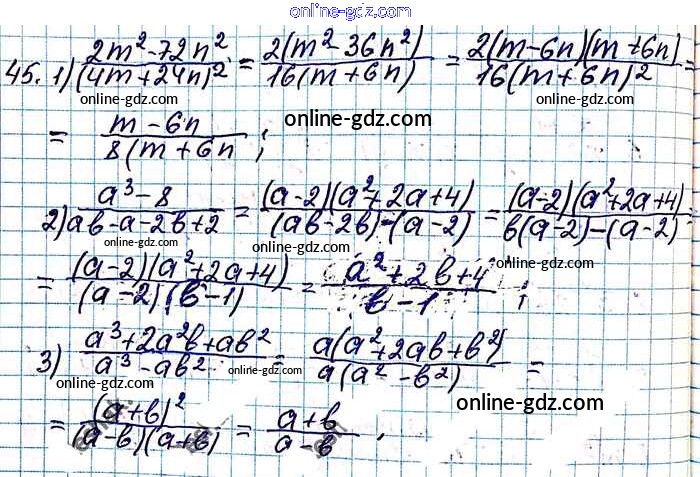 online-gdz.com
45. 1) (2m² - 72n²)/(4m + 24n)² = 2(m² - 36n²)/16(m + 6n) = 2(m - 6n)(m + 6n)/16(m + 6n)² =
online-gdz.com online-gdz.com online-gdz.com
= (m - 6n)/8(m + 6n ;
online-gdz.com
2) (a³ - 8)/(ab - a - 2b + 2) = (a - 2)(a² + 2a + 4)/(ab - 2b) - (a - 2) = (a - 2)(a² + 2a + 4)/b(a - 2) - (a - 2) =
online-gdz.com online-gdz.com online-gdz.com
= (a - 2)(a² + 2a + 4)/(a - 2)(b - 1) = (a² + 2b + 4)/(b - 1) ;
online-gdz.com
3) (a³ + 2a²b + ab²)/(a³ - ab²) = a(a² + 2ab + b²)/a(a² - b²) =
online-gdz.com online-gdz.com
= (a + b)²/(a - b)(a + b) = (a + b)/(a - b) ,
online-gdz.com